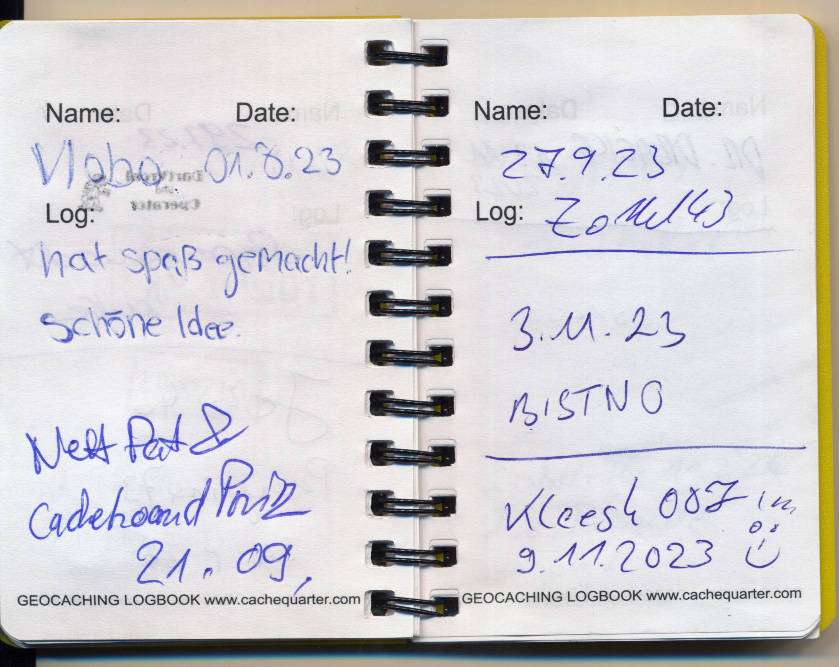 Name: Date:
Vlobo. 01.8.23
Log:
hat spaß gemacht!
schöne Idee.
Pat &
21.09.
GEOCACHING LOGBOOK www.cachequarter.com
Name: Date:
27.9.23
Log:
3.11.23
BISTNO
007
9.11.2023
GEOCACHING LOGBOOK www.cachequarter.com